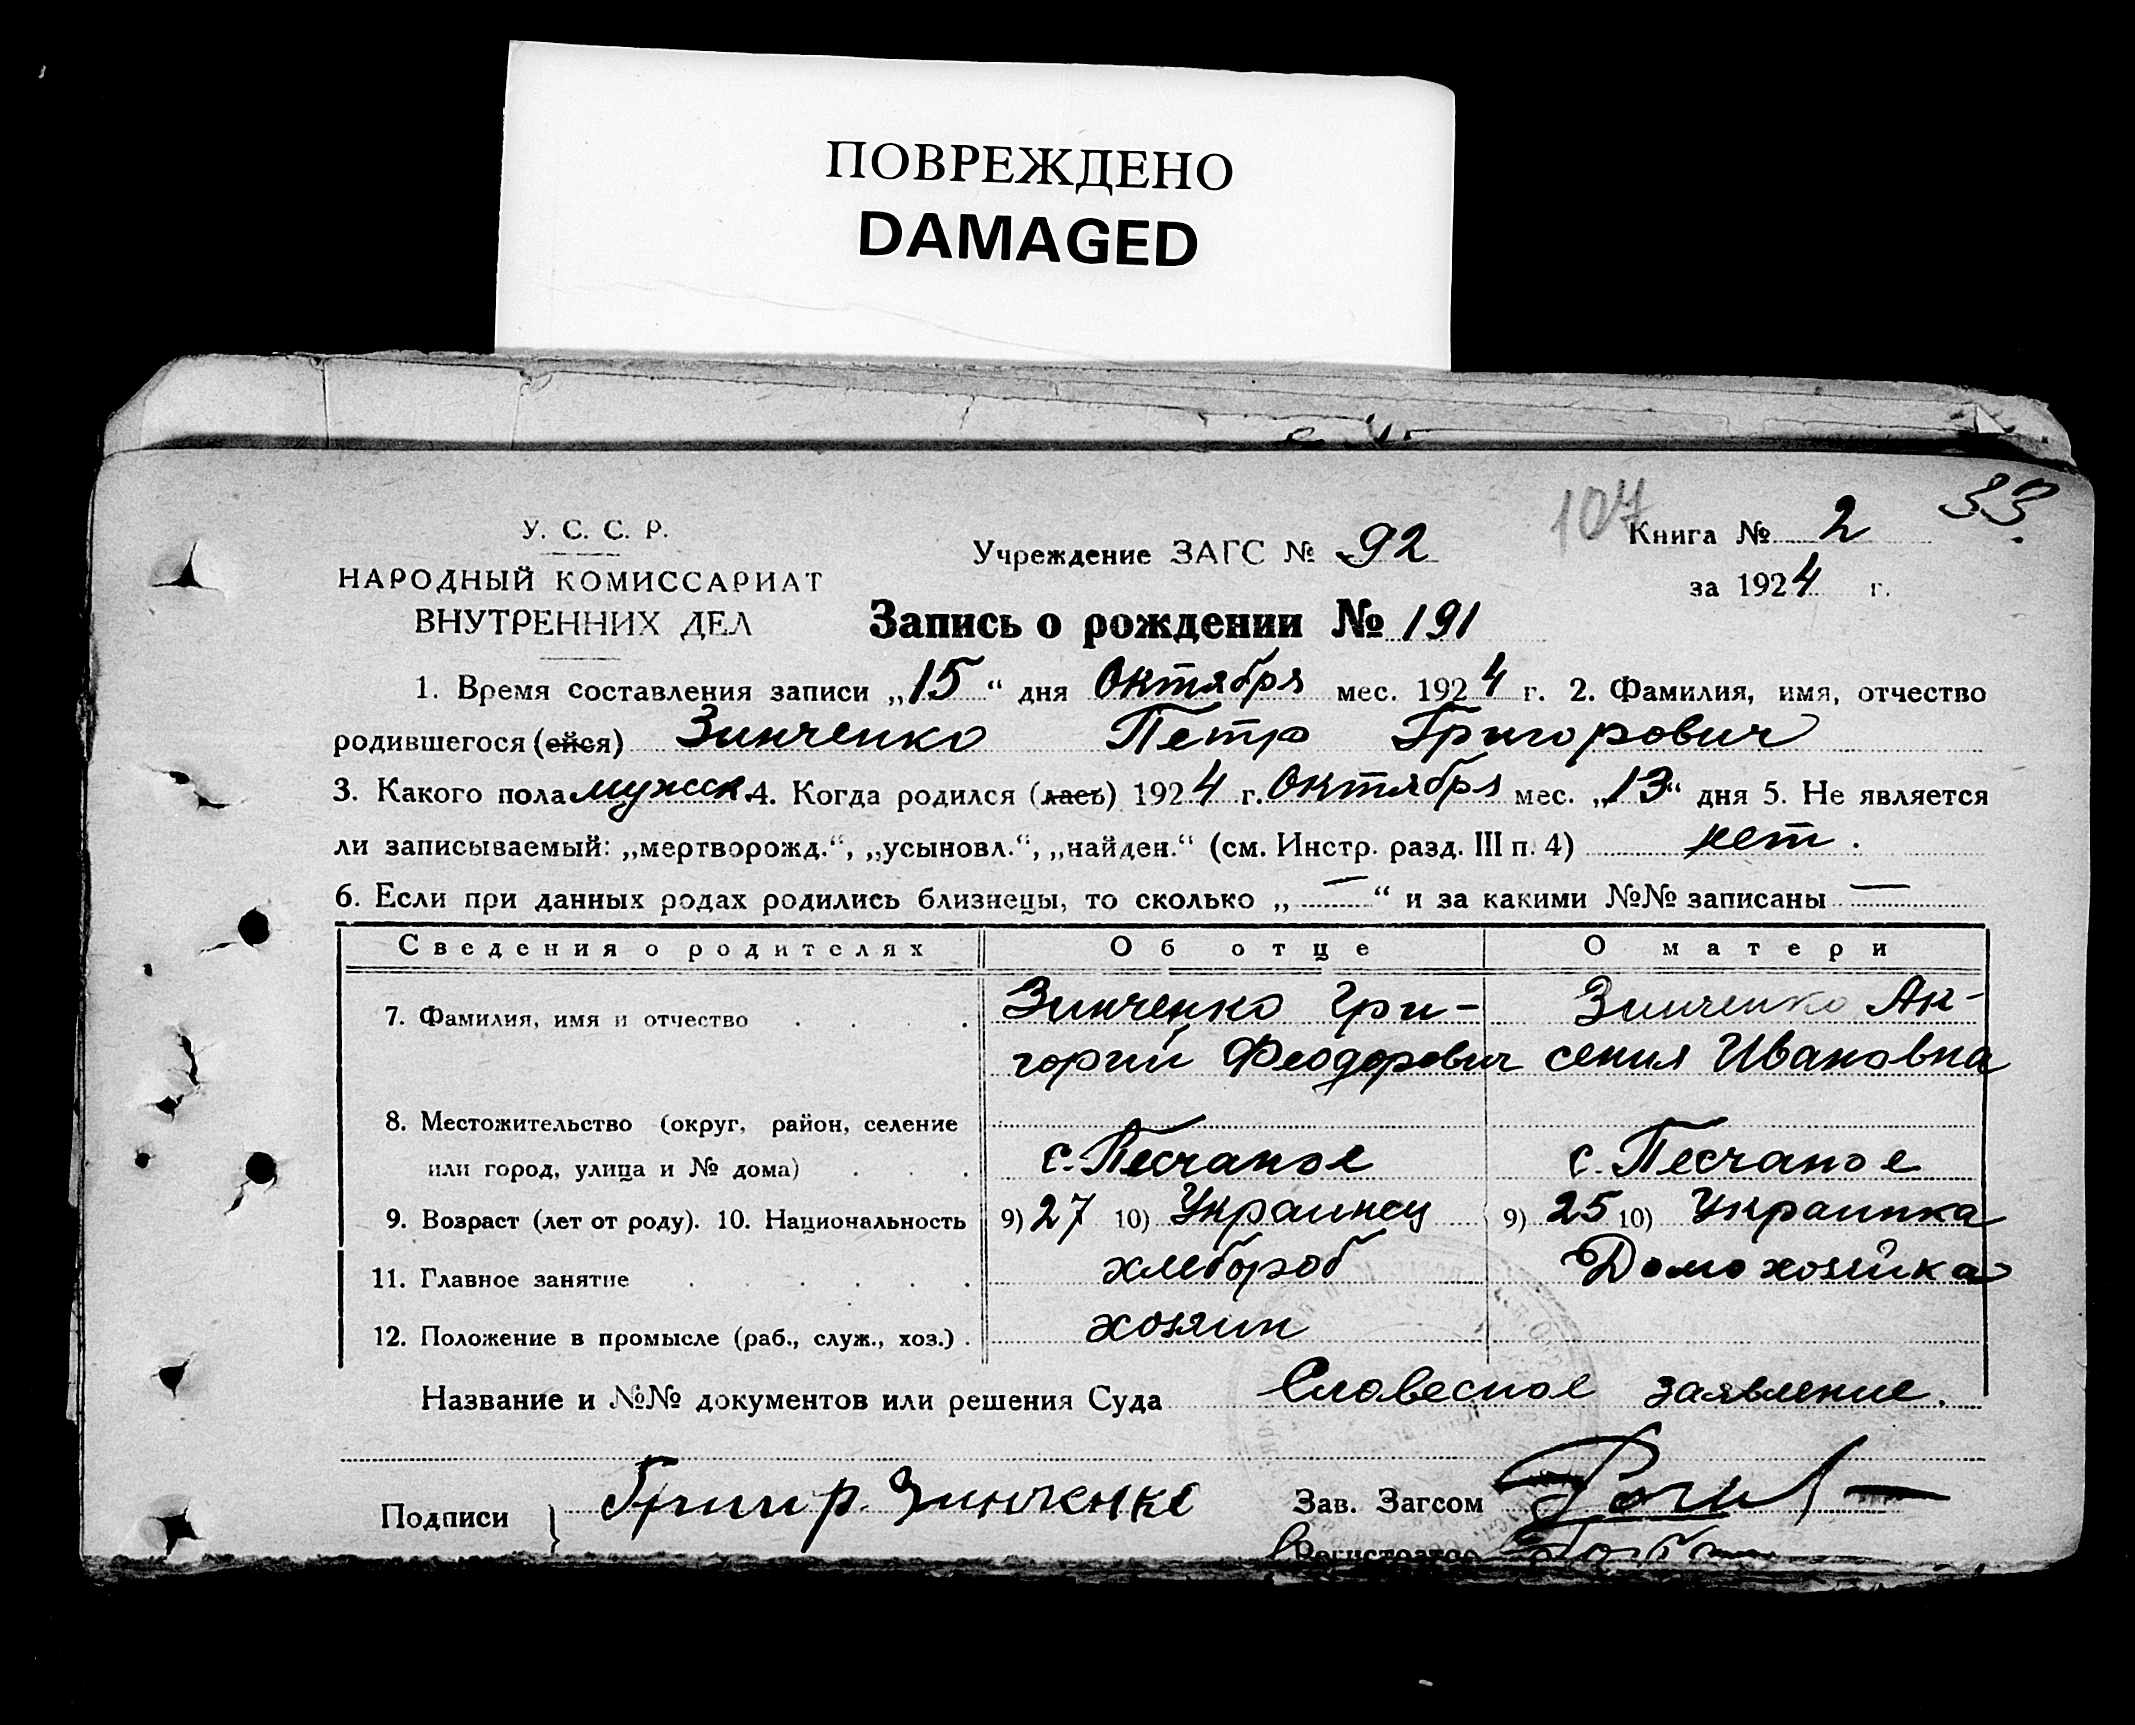 ПОВРЕЖДЕНО
DAMAGED
107 33
У. С. С. Р.
НАРОДНЫЙ КОМИССАРИАТ
ВНУТРЕННИХ ДЕЛ
Учреждение ЗАГС № 92
Книга № 2
за 1924 г.
Запись о рождении № 191
1. Время составления записи „15“ дня Октября мес. 1924 г. 2. Фамилия, имя, отчество
родившегося (ейся) Зинченко Петр Григорович
3. Какого пола мужск. 4. Когда родился (лась) 1924 г. Октября мес. „13“ дня 5. Не является
ли записываемый: „мертворожд.“, „усыновл.“, „найден.“ (см. Инстр. разд. III п. 4) нет.
6. Если при данных родах родились близнецы, то сколько „—“ и за какими №№ записаны —
Сведения о родителях Об отце О матери
7. Фамилия, имя и отчество Зинченко Гри- Зинченко Ак-
горий Феодорович сения Ивановна
8. Местожительство (округ, район, селение
или город, улица и № дома) с. Песчаное с. Песчаное
9. Возраст (лет от роду). 10. Национальность 9) 27 10) Украинец 9) 25 10) Украинка
11. Главное занятие хлебороб Домохозяйка
12. Положение в промысле (раб., служ., хоз.) хозяин
Название и №№ документов или решения Суда Словесное заявление.
Подписи } Григор. Зинченко Зав. Загсом
Регистратор